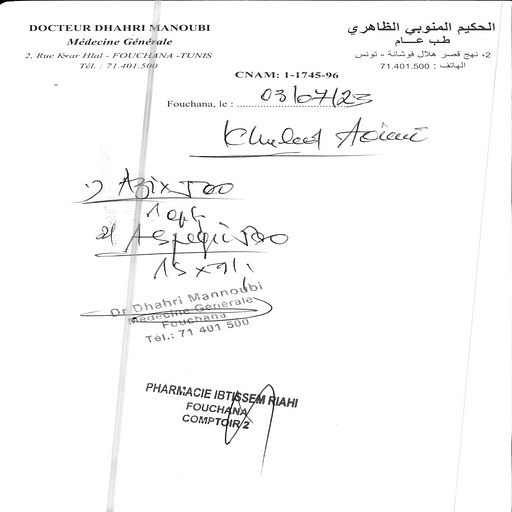 DOCTEUR DHAHRI MANOUBI
Médecine Générale
2, Rue Ksar Hlal - FOUCHANA -TUNIS
Tél. : 71.401.500
الحكيم المنوبي الظاهري
طب عــام
2، نهج قصر هلال فوشانة - تونس
الهاتف : 71.401.500
CNAM: 1-1745-96
Fouchana, le : 03/07/23
1) Azix 500
2)
Dr Dhahri Mannoubi
Médecine Générale
Fouchana
Tél.: 71 401 500
PHARMACIE IBTISSEM RIAHI
FOUCHANA
COMPTOIR 2